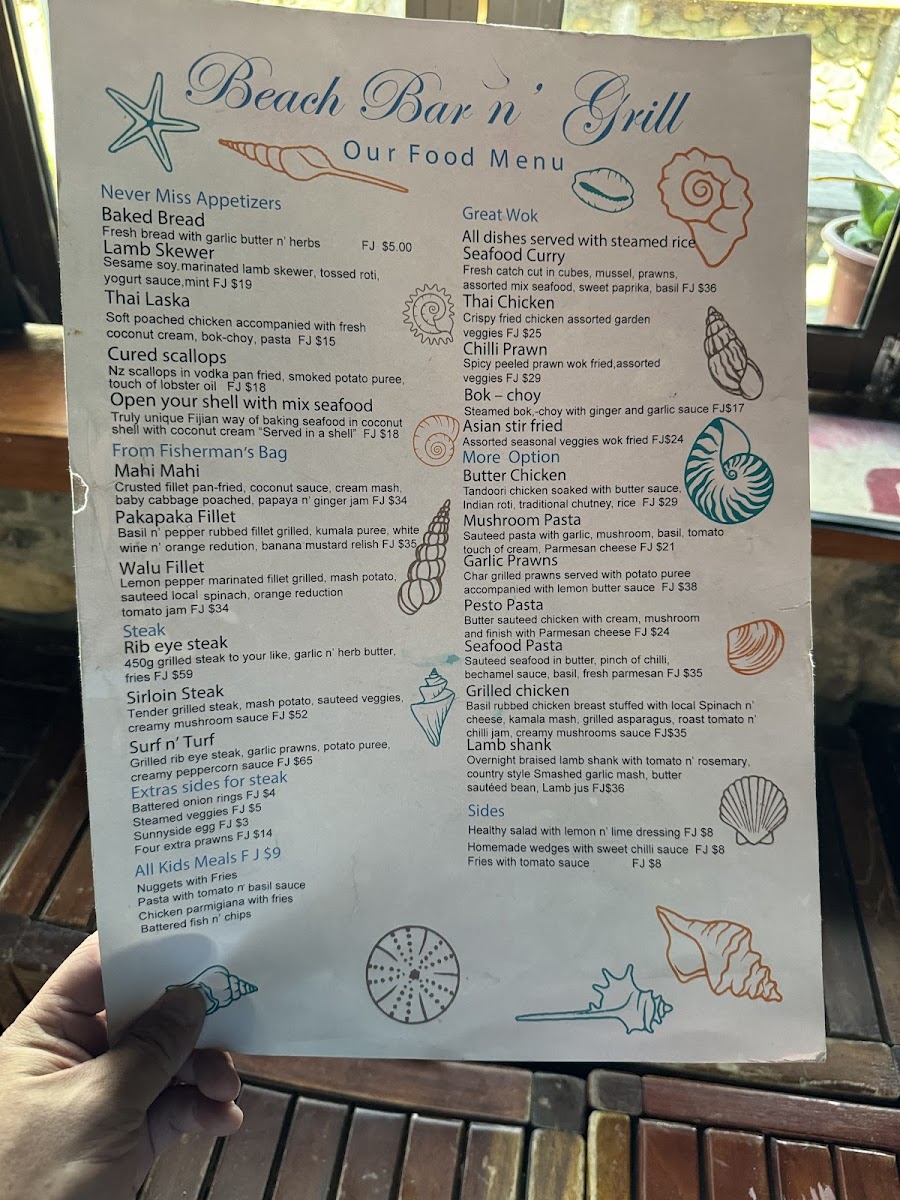 Beach Bar n' Grill
Our Food Menu
Never Miss Appetizers
Baked Bread
Fresh bread with garlic butter n' herbs FJ $5.00
Lamb Skewer
Sesame soy marinated lamb skewer, tossed roti,
yogurt sauce,mint FJ $19
Thai Laska
Soft poached chicken accompanied with fresh
coconut cream, bok-choy, pasta FJ $15
Cured scallops
Nz scallops in vodka pan fried, smoked potato puree,
touch of lobster oil FJ $18
Open your shell with mix seafood
Truly unique Fijian way of baking seafood in coconut
shell with coconut cream “Served in a shell” FJ $18
From Fisherman's Bag
Mahi Mahi
Crusted fillet pan-fried, coconut sauce, cream mash,
baby cabbage poached, papaya n' ginger jam FJ $34
Pakapaka Fillet
Basil n' pepper rubbed fillet grilled, kumala puree, white
wine n' orange redution, banana mustard relish FJ $35
Walu Fillet
Lemon pepper marinated fillet grilled, mash potato,
sauteed local spinach, orange reduction
tomato jam FJ $34
Steak
Rib eye steak
450g grilled steak to your like, garlic n' herb butter,
fries FJ $59
Sirloin Steak
Tender grilled steak, mash potato, sauteed veggies,
creamy mushroom sauce FJ $52
Surf n' Turf
Grilled rib eye steak, garlic prawns, potato puree,
creamy peppercorn sauce FJ $65
Extras sides for steak
Battered onion rings FJ $4
Steamed veggies FJ $5
Sunnyside egg FJ $3
Four extra prawns FJ $14
All Kids Meals F J $9
Nuggets with Fries
Pasta with tomato n' basil sauce
Chicken parmigiana with fries
Battered fish n' chips
Great Wok
All dishes served with steamed rice
Seafood Curry
Fresh catch cut in cubes, mussel, prawns,
assorted mix seafood, sweet paprika, basil FJ $36
Thai Chicken
Crispy fried chicken assorted garden
veggies FJ $25
Chilli Prawn
Spicy peeled prawn wok fried,assorted
veggies FJ $29
Bok – choy
Steamed bok,-choy with ginger and garlic sauce FJ$17
Asian stir fried
Assorted seasonal veggies wok fried FJ$24
More Option
Butter Chicken
Tandoori chicken soaked with butter sauce,
Indian roti, traditional chutney, rice FJ $29
Mushroom Pasta
Sauteed pasta with garlic, mushroom, basil, tomato
touch of cream, Parmesan cheese FJ $21
Garlic Prawns
Char grilled prawns served with potato puree
accompanied with lemon butter sauce FJ $38
Pesto Pasta
Butter sauteed chicken with cream, mushroom
and finish with Parmesan cheese FJ $24
Seafood Pasta
Sauteed seafood in butter, pinch of chilli,
bechamel sauce, basil, fresh parmesan FJ $35
Grilled chicken
Basil rubbed chicken breast stuffed with local Spinach n'
cheese, kamala mash, grilled asparagus, roast tomato n'
chilli jam, creamy mushrooms sauce FJ$35
Lamb shank
Overnight braised lamb shank with tomato n' rosemary,
country style Smashed garlic mash, butter
sautéed bean, Lamb jus FJ$36
Sides
Healthy salad with lemon n' lime dressing FJ $8
Homemade wedges with sweet chilli sauce FJ $8
Fries with tomato sauce FJ $8